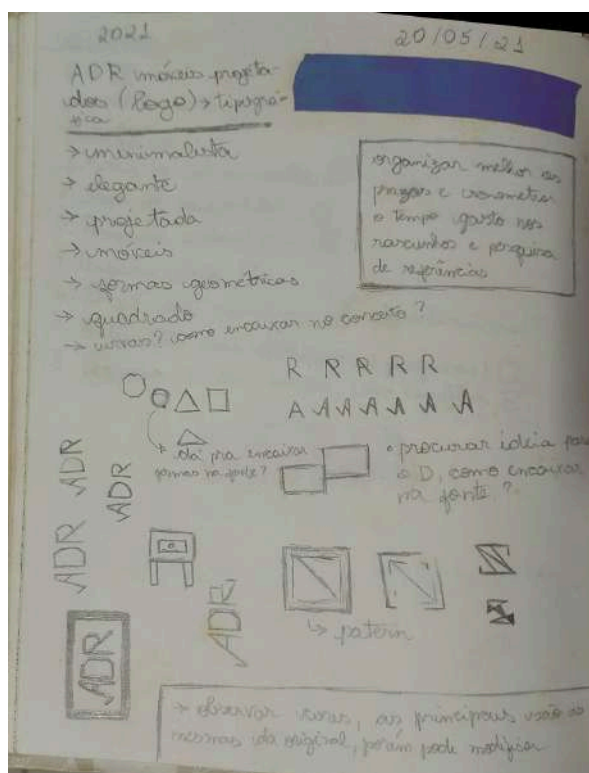 2021
20/05/21
ADR móveis projeta-
dos (logo) → tipográ-
fica
→ minimalista
→ elegante
→ projetada
→ móveis
→ formas geométricas
→ quadrado
→ como encaixar no conceito?
organizar melhor os
prazos e cronometrar
o tempo gasto nos
rascunhos e pesquisa
de referências
R R R R R
A A A A A A A
→ dá pra encaixar
formas na fonte?
• procurar ideia para
o D, como encaixar
na fonte?
ADR
ADR
ADR
ADR
ADR
ADR
↳ patern
→ observar cores, as principais são as
mesmas da original, porém pode modificar